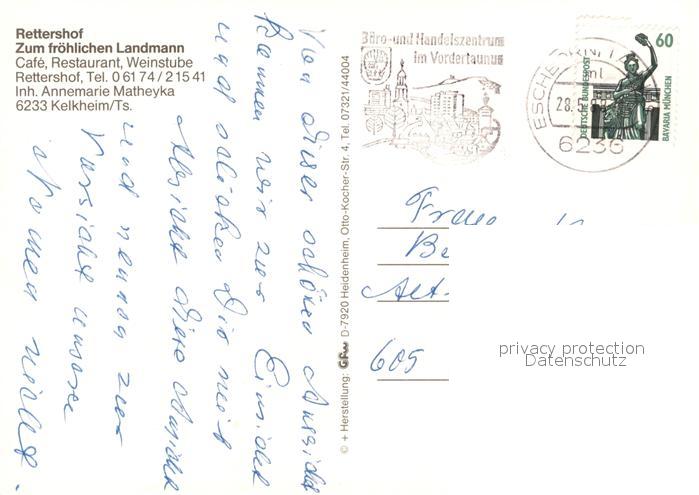 Rettershof
Zum fröhlichen Landmann
Café, Restaurant, Weinstube
Rettershof, Tel. 0 61 74 / 2 15 41
Inh. Annemarie Matheyka
6233 Kelkheim/Ts.
Von dieser schönen Aussicht
kommen wir zur Einsicht
und schicken Dir mit
Absicht diese Ansicht
und nenn zur
Vorsicht unsere
Namen nicht.
© + Herstellung: D-7920 Heidenheim, Otto-Kocher-Str. 4, Tel. 07321/44004
Büro- und Handelszentrum
im Vordertaunus
ESCHBORN
28.
6236
60
DEUTSCHE BUNDESPOST
BAVARIA MÜNCHEN
Frau
Be
Alt-
605
privacy protection
Datenschutz